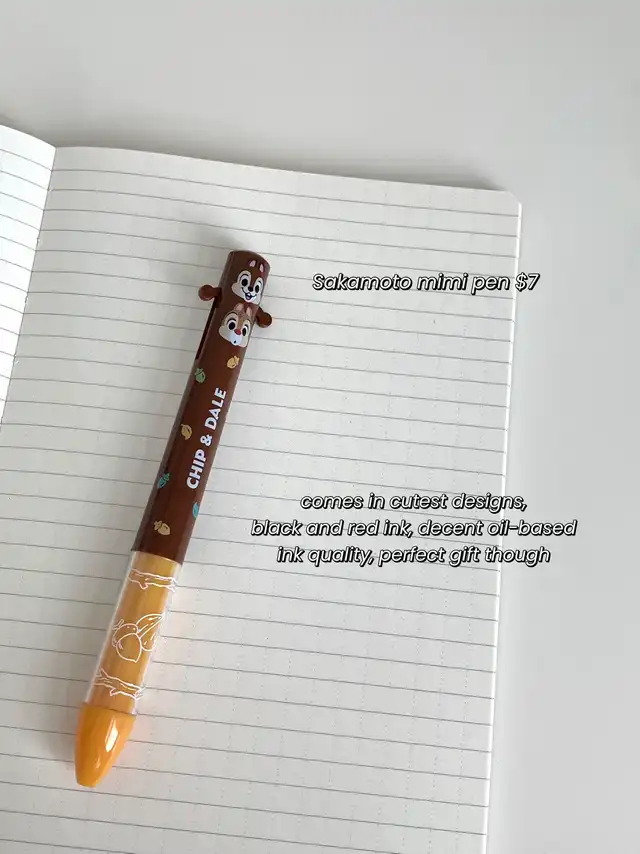 Sakamoto mimi pen $7
CHIP & DALE
comes in cutest designs,
black and red ink, decent oil-based
ink quality, perfect gift though